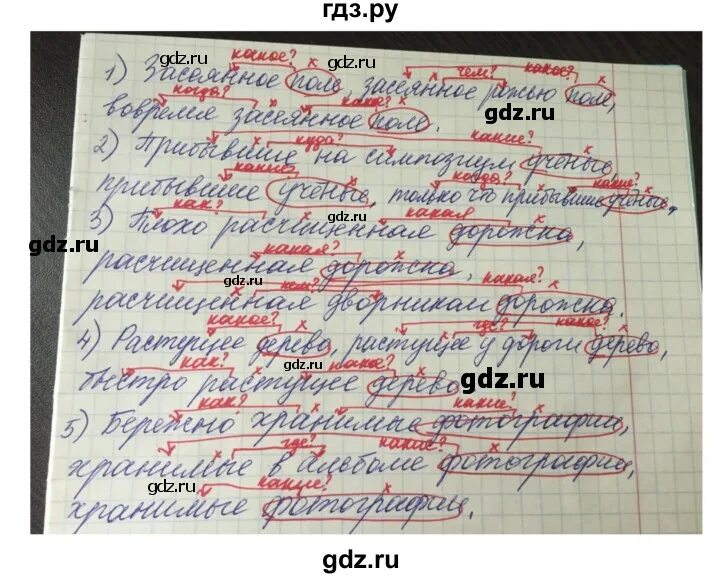 гдз.ру
какое? чем? какое?
1) Засеянное поле, засеянное рожью поле,
когда? какое?
вовремя засеянное поле.
куда? какие?
2) Прибывшие на симпозиум учёные,
какие? когда? какие?
прибывшие учёные, только что прибывшие учёные.
как? какая
3) Плохо расчищенная дорожка,
какая?
расчищенная дорожка,
кем? какая?
расчищенная дворником дорожка.
какое? где? какое?
4) Растущее дерево, растущее у дороги дерево,
как? какое?
быстро растущее дерево
как? какие?
5) Бережно хранимые фотографии,
где? какие?
хранимые в альбоме фотографии,
какие?
хранимые фотографии.
gdz.ru
gdz.ru
gdz.ru
gdz.ru
gdz.ru
gdz.ru
gdz.ru
gdz.ru
gdz.ru
gdz.ru
gdz.ru
gdz.ru